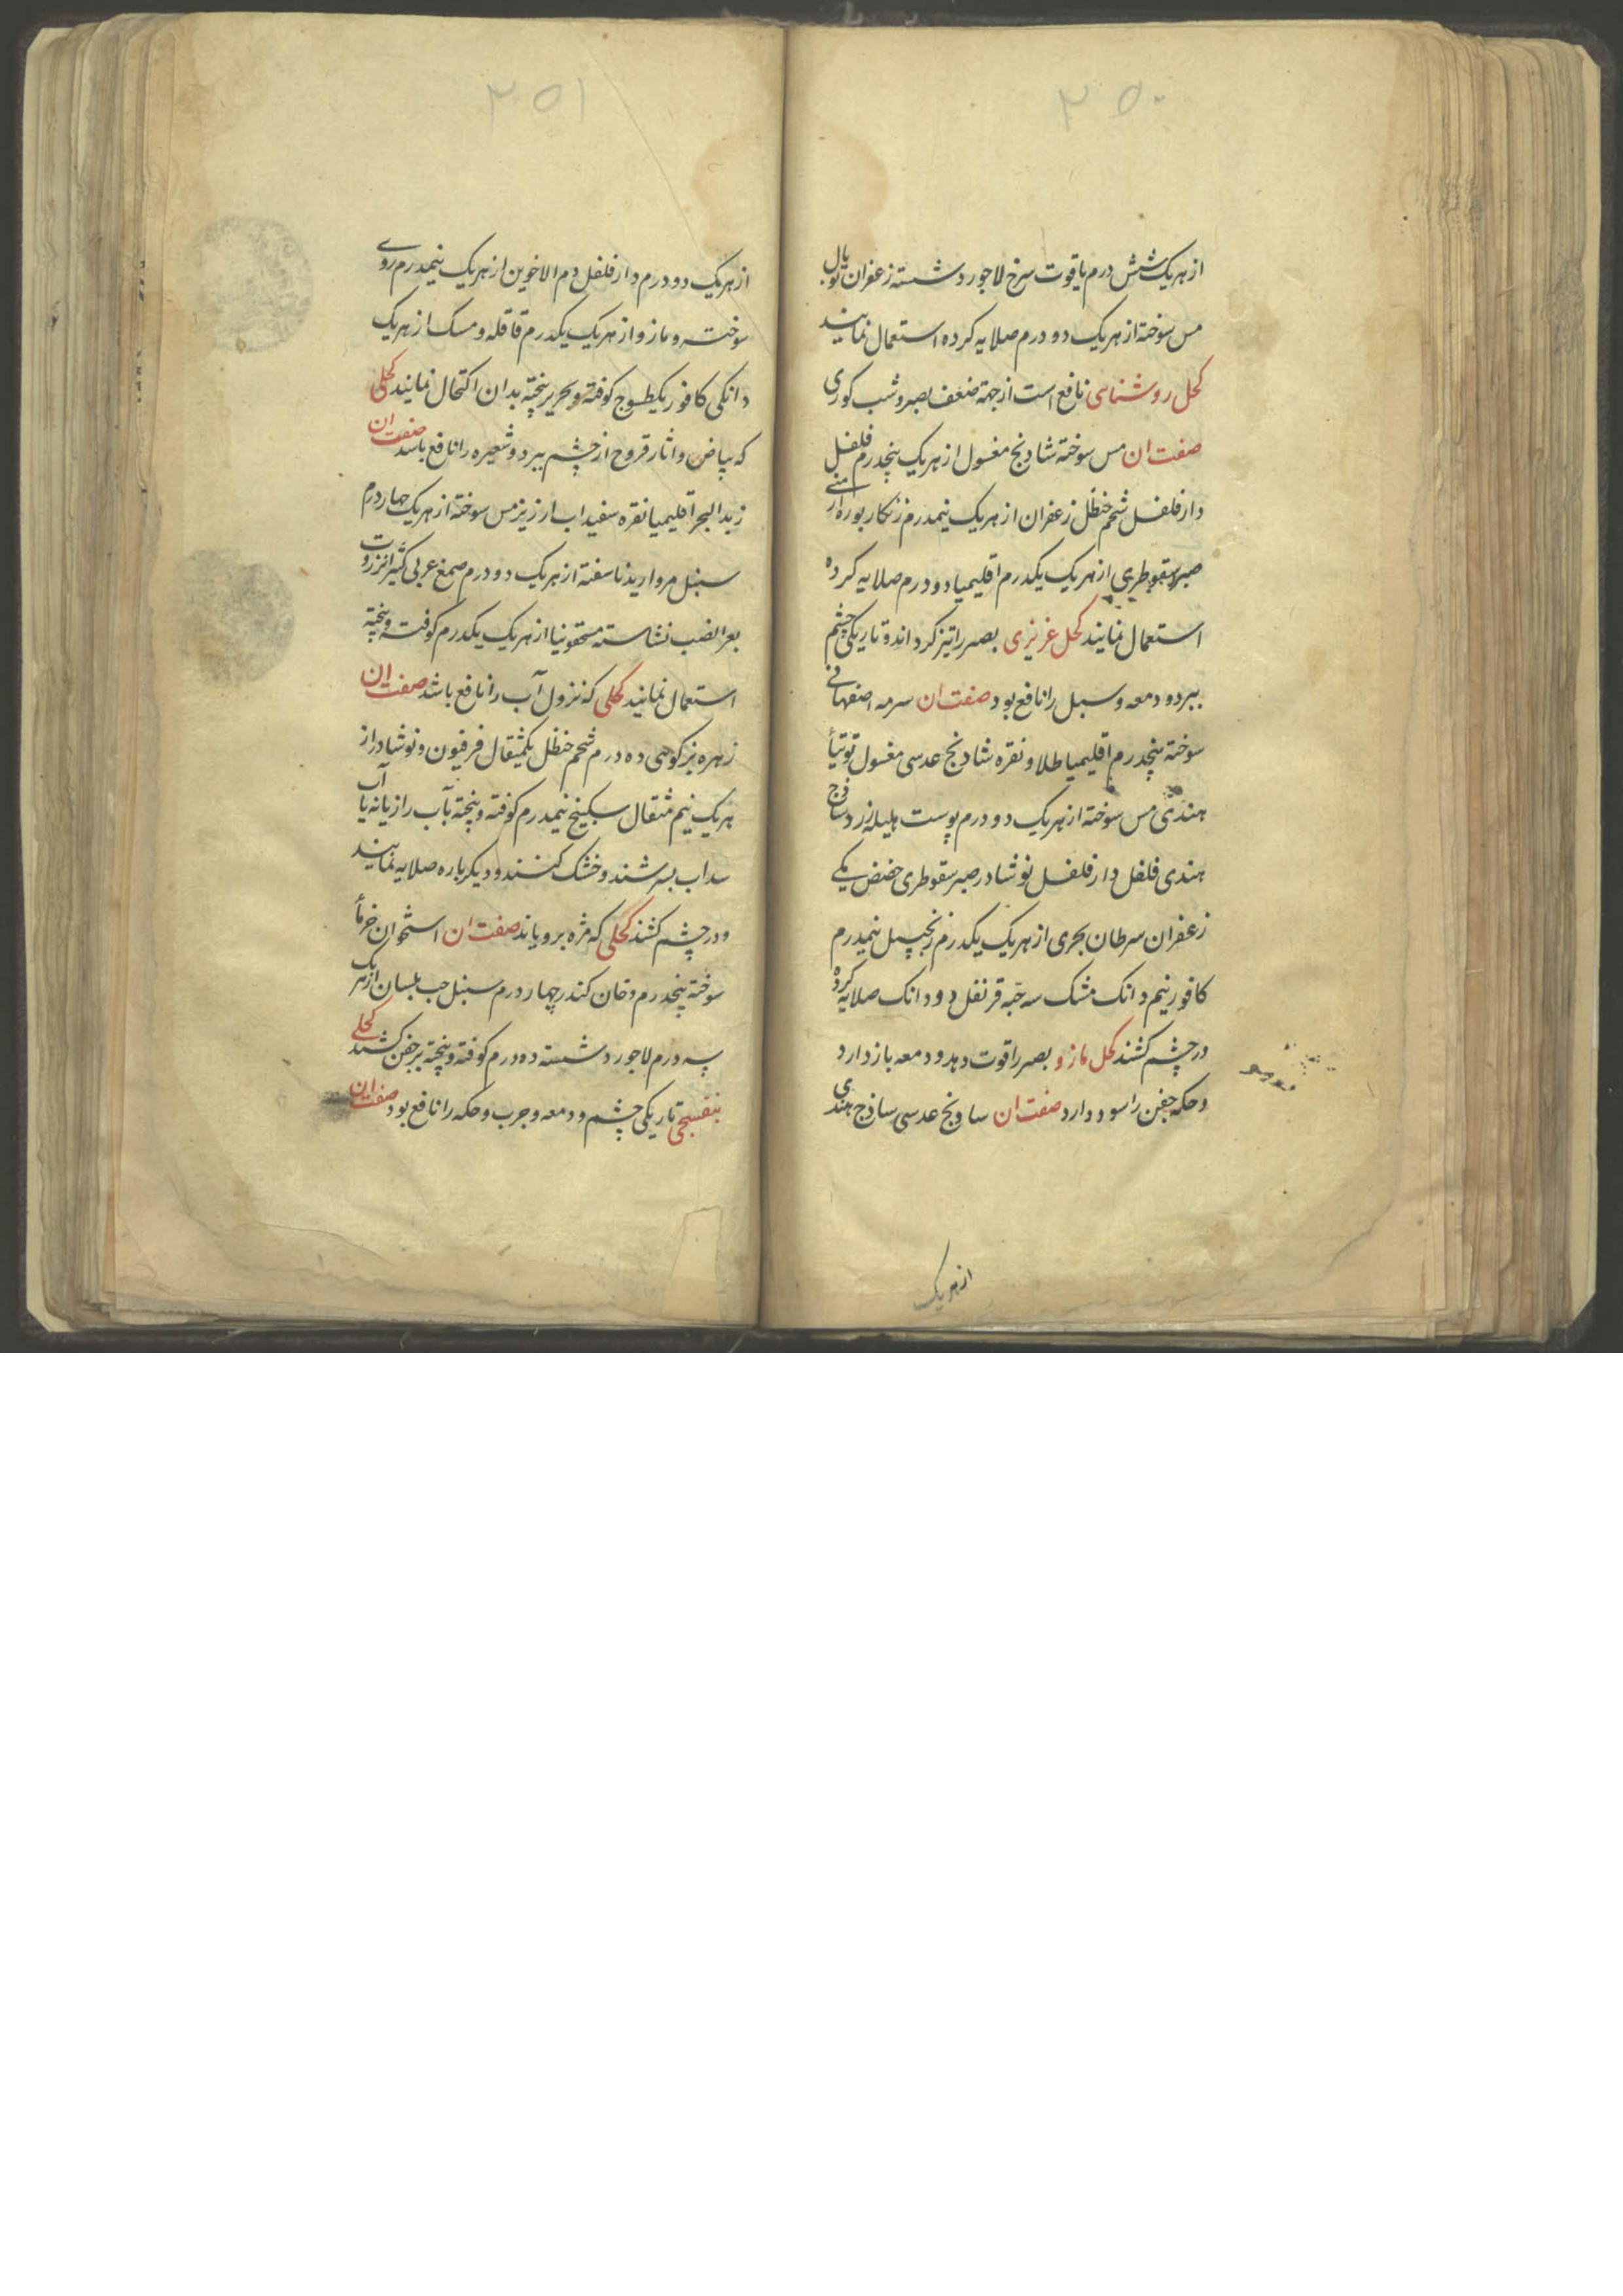 ۳۵۰
از هریک شش درم یاقوت سرخ لاجورد شسته زعفران توبال
مس سوخته از هریک دو درم صلایه کرده استعمال نمایند
کحل روشنای نافع است از جهة ضعف بصر و شب کوری
صفت ان مس سوخته شادنج مغسول از هریک پنجدرم فلفل
دارفلفل شحم حنظل زعفران از هریک نیمدرم زنکار بوره ارمنی
صبر سقوطری از هریک یکدرم اقلیمیا دو درم صلایه کرده
استعمال نمایند کحل عزیزی بصر را تیز کرداند و تاریکی چشم
ببرد و دمعه و سبل را نافع بود صفت ان سرمه اصفهانی
سوخته پنجدرم اقلیمیا طلا و نقره شادنج عدسی مغسول توتیاٴ
هندی مس سوخته از هریک دو درم پوست هلیله زرد ساذج
هندی فلفل دارفلفل نوشادر صبر سقوطری حضض مکی
زعفران سرطان بحری از هریک یکدرم زنجبیل نیمدرم
کافور نیم دانک مشک سه حبه قرنفل دو دانک صلایه کرده
در چشم کشند کحل مازو بصر را قوت دهد و دمعه باز دارد
و حکه جفن را سود دارد صفت ان سادنج عدسی ساذج هندی
از هریک
۳۵۱
از هریک دو درم دارفلفل دم الاخوین از هریک نیمدرم روی
سوخته و مازو از هریک یکدرم قاقله و مسک از هریک
دانکی کافور یکطسوج کوفته و بحریر پخته بدان اکتحال نمایند کحلی
که بیاض و اثار قروح از چشم ببرد و شعیره را نافع باشد صفت ان
زبد البحر اقلیمیا نقره سفیداب ارزیز مس سوخته از هریک چهار درم
سنبل مروارید ناسفته از هریک دو درم صمغ عربی کثیرا انزروت
بعر الضب نشاسته مسحقونیا از هریک یکدرم کوفته و پخته
استعمال نمایند کحلی که نزول آب را نافع باشد صفت ان
زهره بزکوهی ده درم شحم حنظل یکمثقال فرفیون و نوشادر از
هریک نیم مثقال سکبینج نیمدرم کوفته و پخته بآب رازیانه یا آب
سداب بسرشند و خشک کنند و دیکرباره صلایه نمایند
و در چشم کشند کحلی که مژه برویاند صفت ان استخوان خرماٴ
سوخته پنجدرم دخان کندر چهار درم سنبل حب بلسان از هریک
سه درم لاجورد شسته ده درم کوفته و پخته بر جفن کشند کحلی
بنفسجی تاریکی چشم و دمعه و جرب و حکه را نافع بود صفت ان